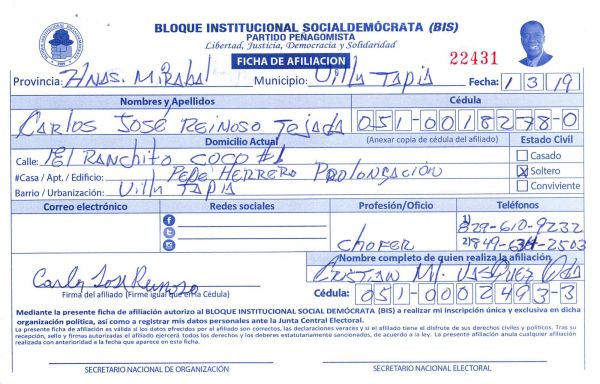 BLOQUE INSTITUCIONAL SOCIALDEMÓCRATA (BIS)
PARTIDO PEÑAGOMISTA
Libertad, Justicia, Democracia y Solidaridad
FICHA DE AFILIACION
22431
Provincia: Hnas. Mirabal Municipio: Villa Tapia Fecha: 1 3 19
Nombres y Apellidos Cédula
Carlos José Reinoso Tejada 051-0018278-0
Domicilio Actual (Anexar copia de cédula del afiliado) Estado Civil
Calle: El Ranchito COCO #1 Casado
#Casa / Apt. / Edificio: Pepe Herrero Prolongación X Soltero
Barrio / Urbanización: Villa Tapia Conviviente
Correo electrónico Redes sociales Profesión/Oficio Teléfonos
1) 829-610-9232
Chofer 2) 849-634-2503
Nombre completo de quien realiza la afiliación
Carlos José Reinoso Cristian Ml. Vasquez
Firma del afiliado (Firme igual que en la Cédula) Cédula: 051-0002493-3
Mediante la presente ficha de afiliación autorizo al BLOQUE INSTITUCIONAL SOCIAL DEMÓCRATA (BIS) a realizar mi inscripción única y exclusiva en dicha
organización política, así como a registrar mis datos personales ante la Junta Central Electoral.
La presente ficha de afiliación es válida si los datos ofrecidos por el afiliado son correctos, las declaraciones veraces y si el afiliado tiene el disfrute de sus derechos civiles y políticos. Tras su
recepción, sello y firmas autorizadas el afiliado ejercerá todos los derechos y los deberes estatutariamente sancionados, de acuerdo a la ley. La presente afiliación anula cualquier afiliación
realizada con anterioridad a la fecha que aparece en esta ficha.
SECRETARIO NACIONAL DE ORGANIZACIÓN SECRETARIO NACIONAL